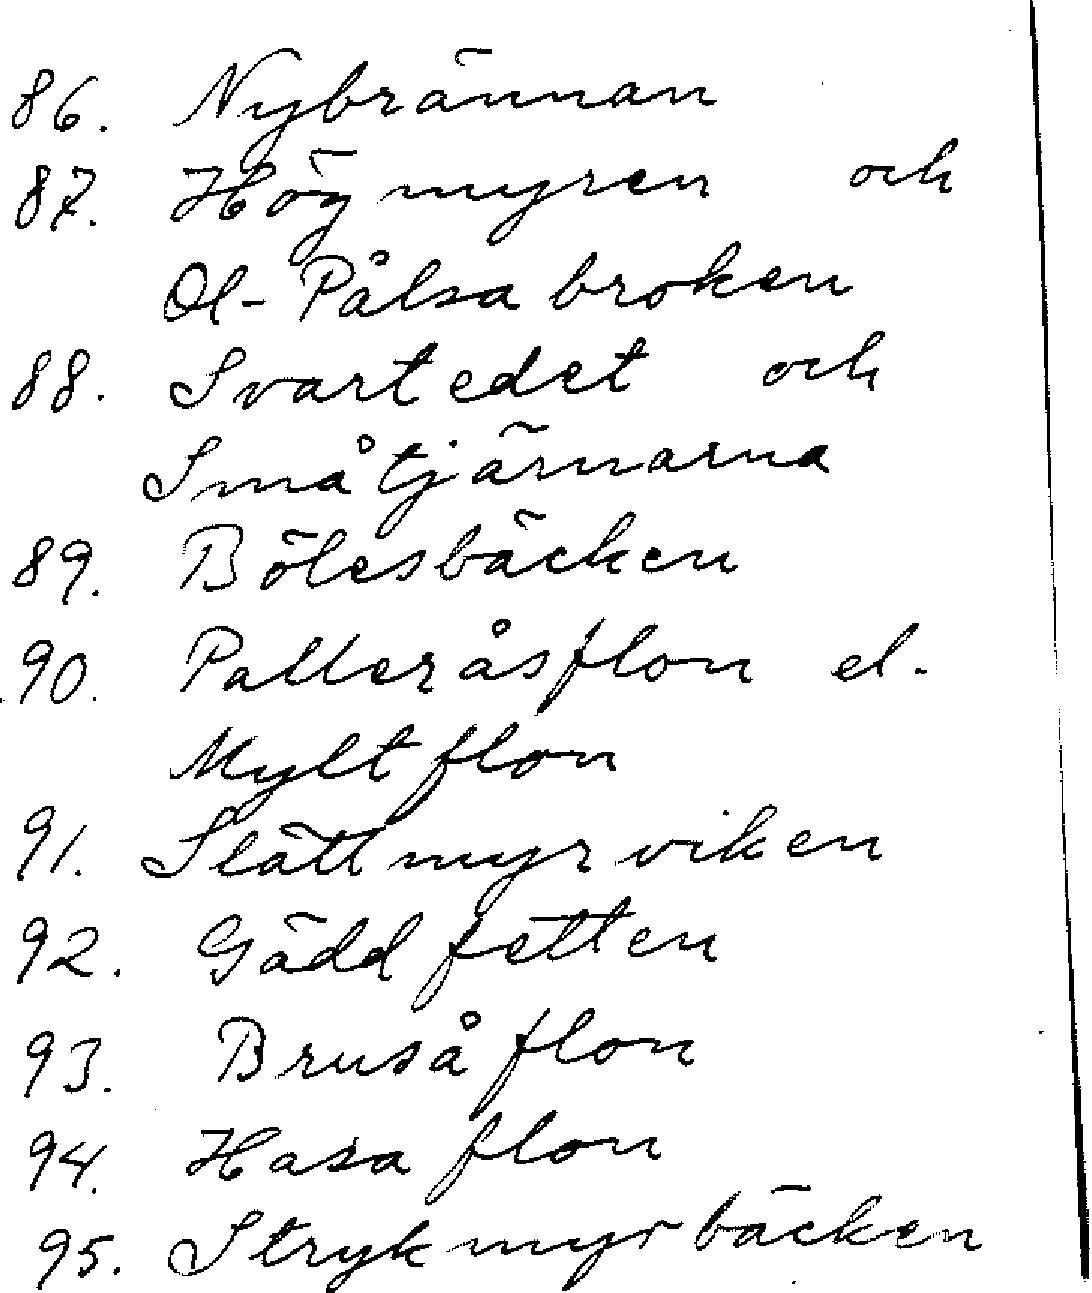 86. Nybrännan
87. Högmyren och
Ol-Pålsa broken
88. Svartedet och
Småtjärnarna
89. Bölesbäcken
90. Palleråsflon el.
Myltflon
91. Slättmyrviken
92. Gäddfetten
93. Brusåflon
94. Hasaflon
95. Strykmyrbäcken